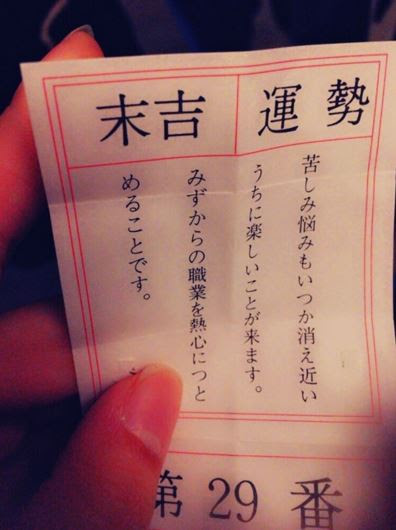 運勢
末吉
苦しみ悩みもいつか消え近い
うちに楽しいことが来ます。
みずからの職業を熱心につと
めることです。
第29番